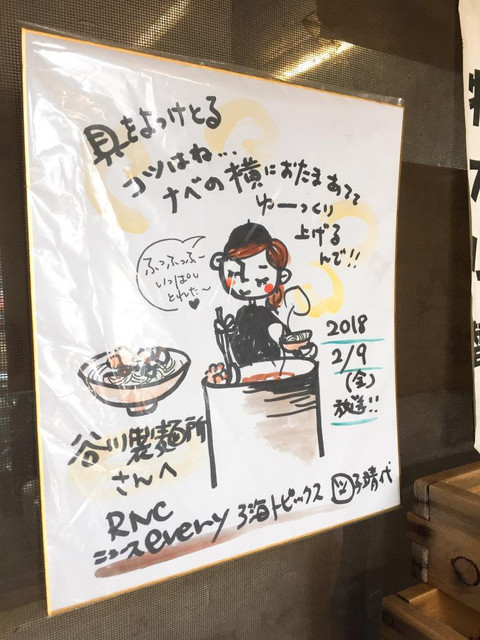 具をよっけとる
コツはね…
ナベの横におたまあてて
ゆーっくり
上げる
んで!!
ふっふっふー
いっぱい
とれた〜♥
2018
2/9
(金)
放送!!
谷川製麺所
さんへ
RNC
ニュースevery